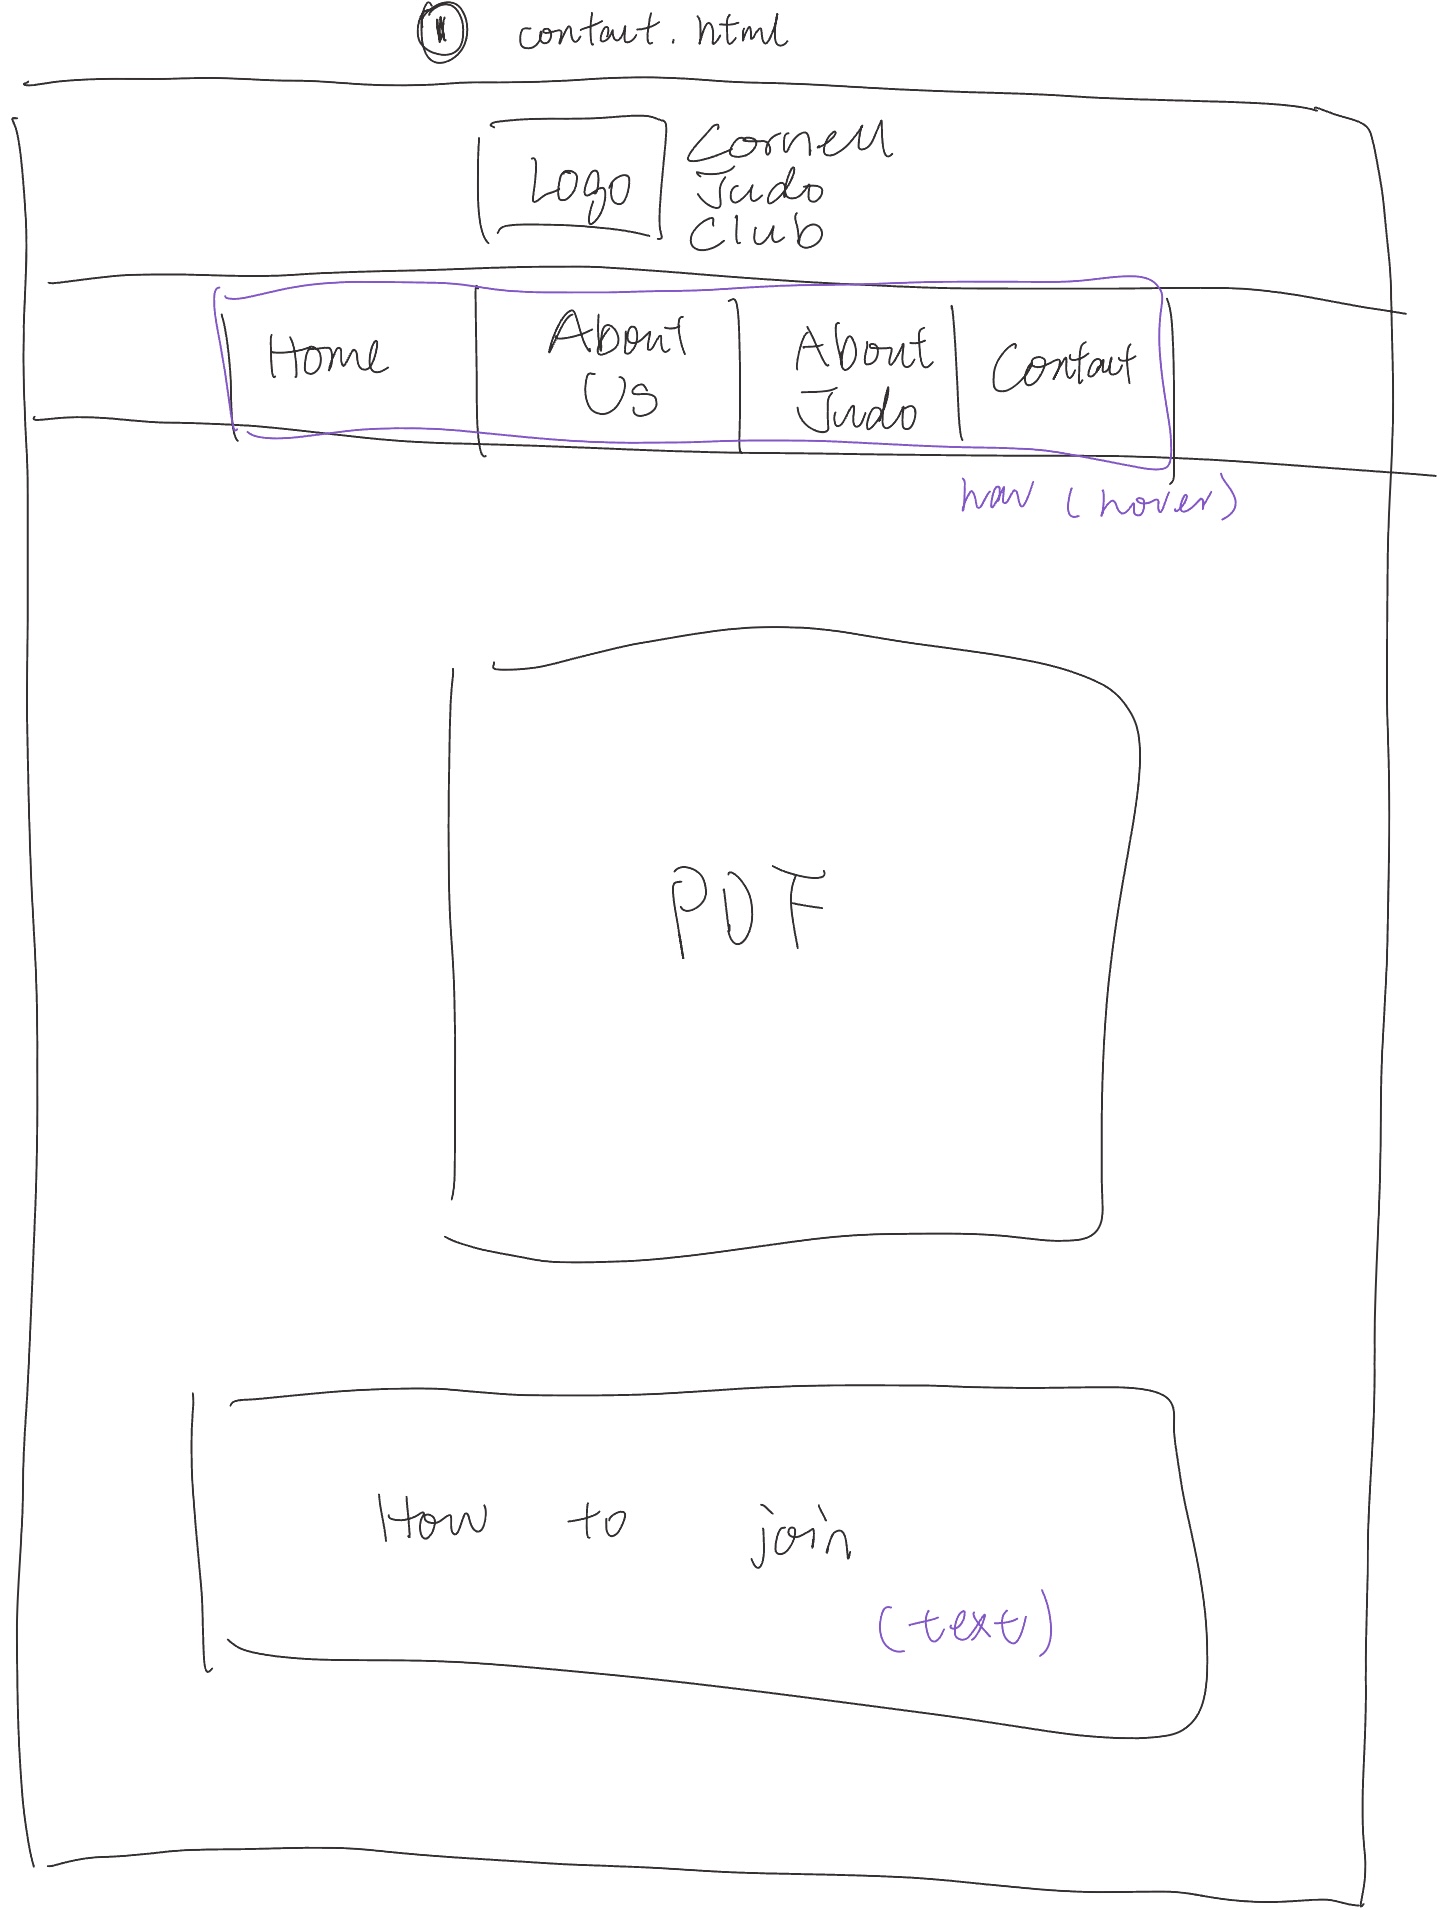 contact.html
Logo
Cornell
Judo
Club
Home
About
Us
About
Judo
Contact
nav (hover)
PDF
How to join
(text)